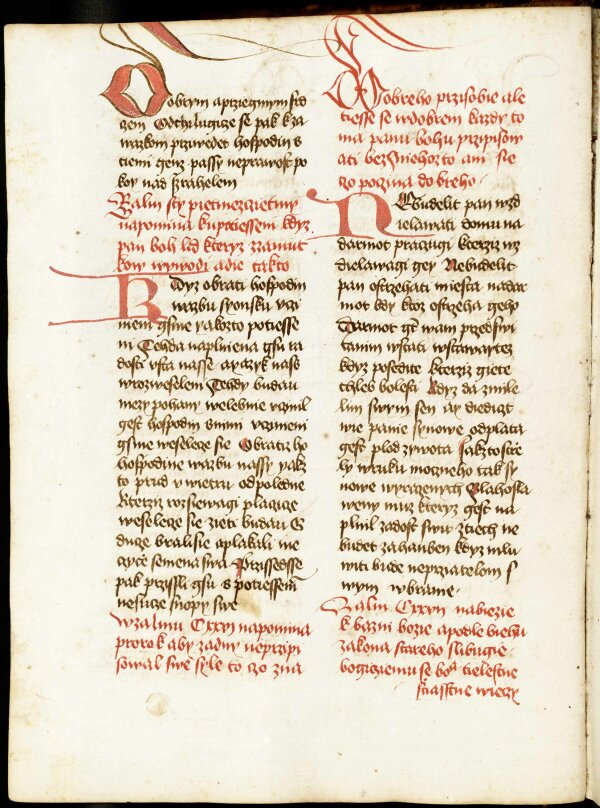 Dobrym a przieymym srd
czem Odchilugicze se pak k za
wazkom przywede hospodin s
tiemi genz passy neprawost po
koy nad Izrahelem
Zalm sty pietmezczietmy
napomina ku potiesseni kdyz
pan boh lid kteryz zzamut
kow wywodi a die takto
Kdyz obrati hospodin
wazbu syonsku uczi
nieni gsme yakozto potiesse
ni Tehda naplniena gsu ra
dosti usta nasse a yazyk nass
w rozweselem Tehdy budau
mezy pohany welebnie uczinil
gest hospodin s nimi uczineni
gsme weseleze sie Obratiz ho
hospodine wazbu nassy yakz
to prud u wietru od poledne
Kterziz rozsiewagi placzicze
weseleze sie zieti budau G
ducze bralisie a plakali me
czyce semena swa Przissedsse
pak przissli gsu s potiessenim
nesucze snopy swe
W zalmu Cxxvi napomina
prorok aby zadny neprzipi
sowal swe syle to czo zna
Dobreho przi sobie ale
tiesse se w dobrem kazdy to
ma panu bohu przipisow
ati bez niehozto ani sie
czo poczina dobreho
Nebudelit pan wzd
ielawati domu na
darmot pracugi kterziz wz
dielawagi gey Nebudelit
pan ostrzehati miesta nadar
mot bdy ktoz ostrzeha geho
Darmot gt wam przed swi
tanim wstati wstawaytez
kdyz posedite kterziz giete
chleb bolesti Kdyz da zmile
lim swym sen ay diedicz
wie panie synowe odplata
gest plod zywota Jakzto strze
ly w ruku mocneho tak sy
nowe wyrazenych Blahosla
weny muz kteryz gest na
plnil zadost swu z tiech ne
budet zahanben kdyz mlu
witi bude neprzatelom s
wym w branie
Zalm Cxxvii nabiezie
k bazni bozie a podle biehu
zakona stareho slibugie
bogicziemu se boha tielestne
stiasstne wieczy